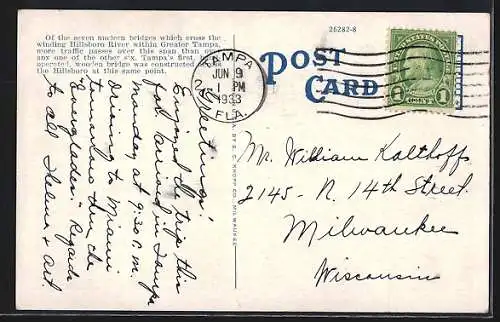 Of the seven modern bridges which cross the
winding Hillsboro River within Greater Tampa,
more traffic passes over this span than over
any one of the other six. Tampa's first,
operated, wooden bridge was constructed across
the Hillsboro at this point.
26282-8
POST
CARD
TAMPA
JUN 9
1 PM
1933
FLA.
UNITED STATES POSTAGE
1 CENT 1
Greetings!
Enjoyed trip this
far arrived Tampa
Monday at 9:30 a.m.
driving to Miami
tomorrow thru the
"everglades" Regards
to all Thelma & Art.
C. KROPP CO., MILWAUKEE
Mr. William Kalthoff
2145 - N. 14th Street.
Milwaukee
Wisconsin